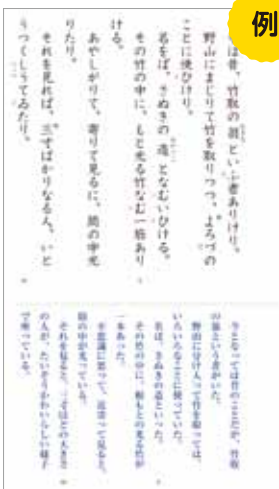 例
は昔、竹取の翁といふ者ありけり。
野山にまじりて竹を取りつつ、よろづの
ことに使ひけり。
名をば、さぬきの造となむいひける。
その竹の中に、もと光る竹なむ一筋あり
ける。
あやしがりて、寄りて見るに、筒の中光
りたり。
それを見れば、三寸ばかりなる人、いと
うつくしうてゐたり。
今となっては昔のことだが、竹取
の翁という者がいた。
野山に分け入って竹を取っては、
いろいろなことに使っていた。
名は、さぬきの造といった。
その竹の中に、根もとの光る竹が
一本あった。
不思議に思って、近寄って見ると、
筒の中が光っている。
それを見ると、三寸ほどの大きさ
の人が、たいそうかわいらしい様子
で座っている。